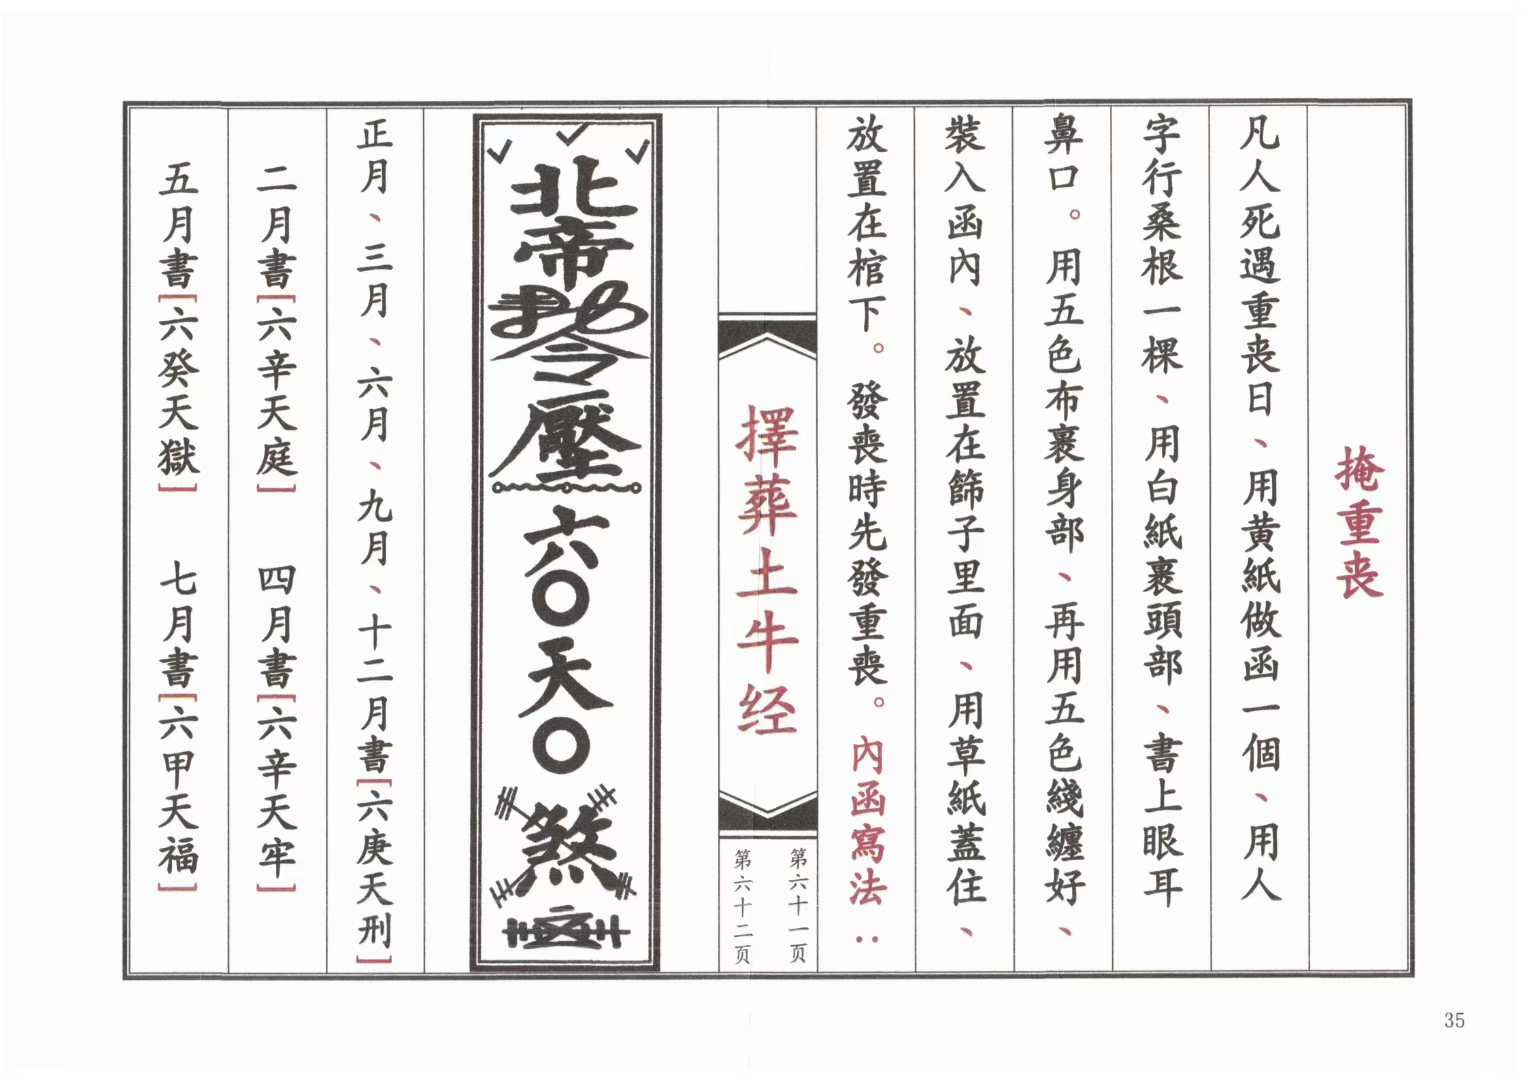 掩重丧
凡人死遇重丧日、用黄紙做函一個、用人
字行桑根一棵、用白紙裹頭部、書上眼耳
鼻口。用五色布裹身部、再用五色綫纏好、
裝入函內、放置在篩子里面、用草紙蓋住、
放置在棺下。發喪時先發重喪。內函寫法：
擇葬土牛经
第六十一页
第六十二页
北帝
令壓六〇天〇煞
正月、三月、六月、九月、十二月書[六庚天刑]
二月書[六辛天庭] 四月書[六辛天牢]
五月書[六癸天獄] 七月書[六甲天福]
35